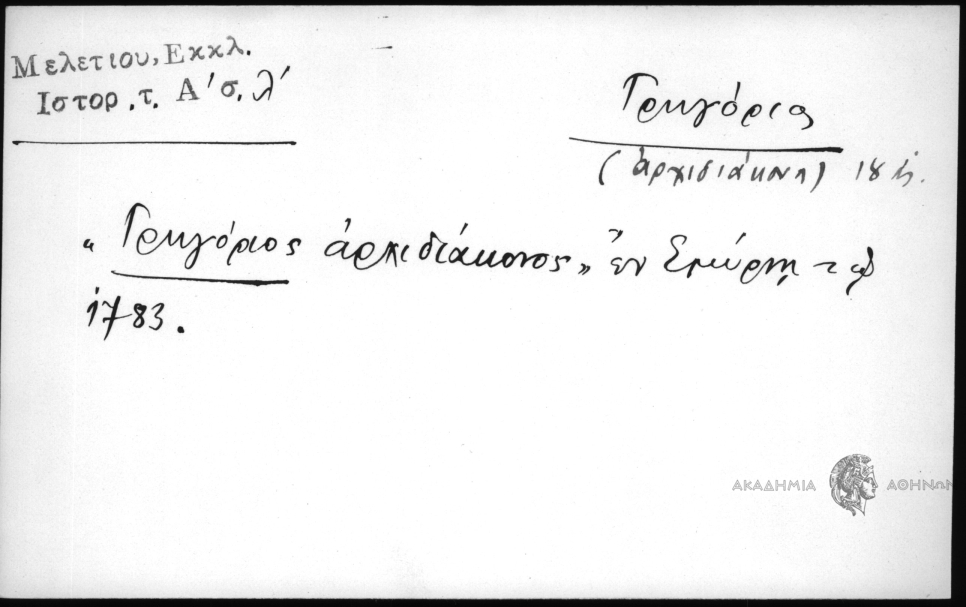 Μελετιου, Εκκλ.
Ιστορ. τ. Α' σ. λ'
Γρηγόριος
(ἀρχιδιάκονος) 18
"Γρηγόριος ἀρχιδιάκονος" ἐν Σμύρνῃ τῷ
1783.
ΑΚΑΔΗΜΙΑ ΑΘΗΝΩΝ